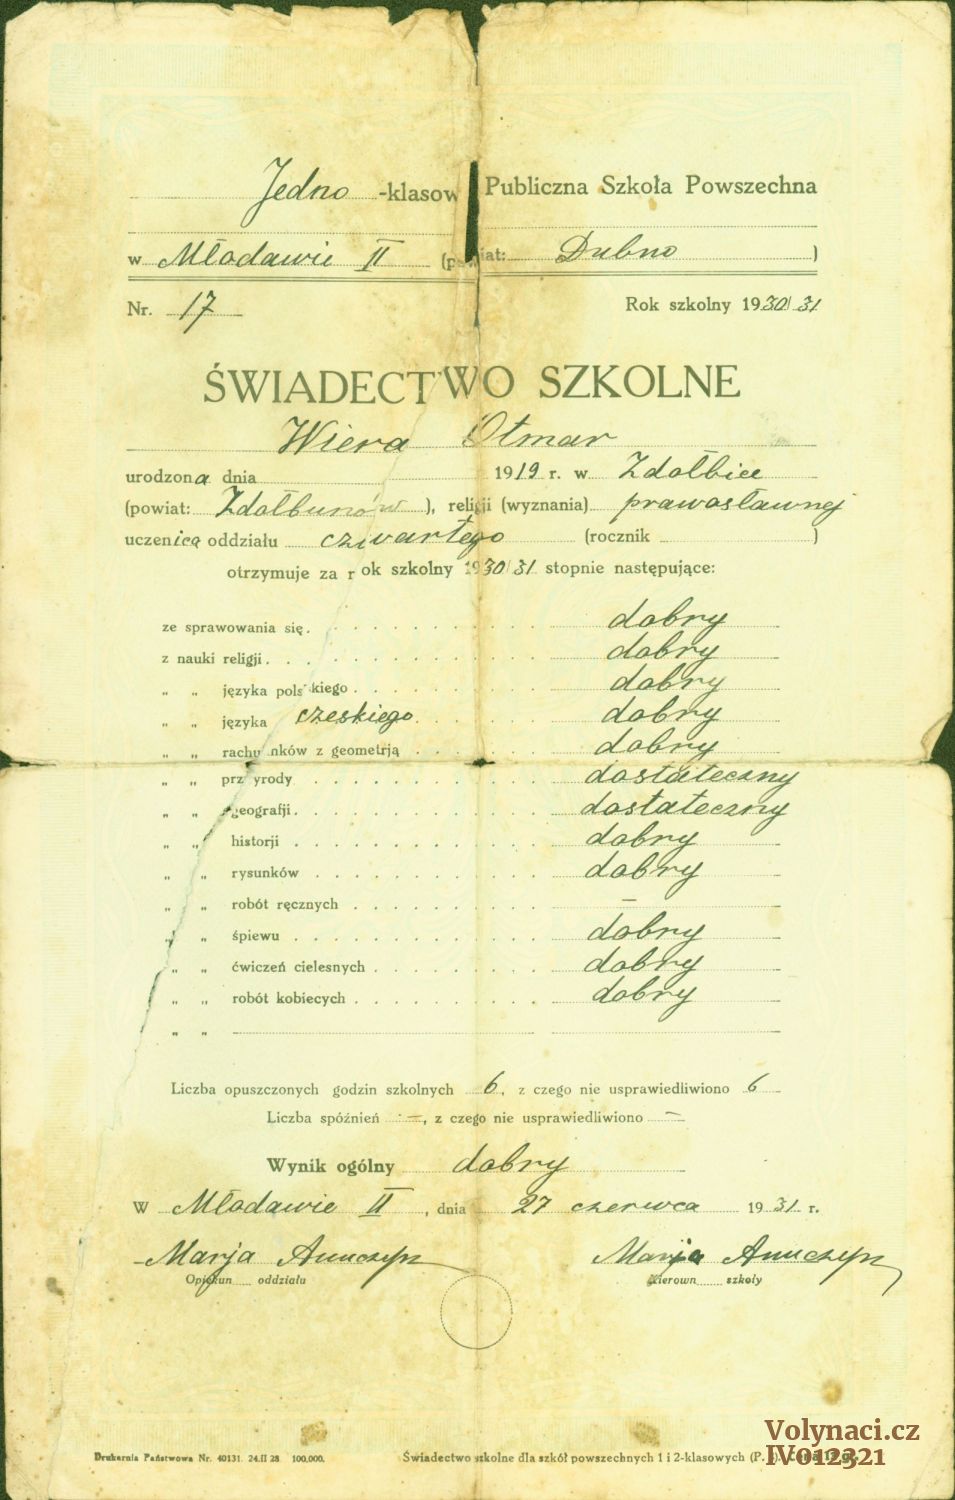 Jedno -klasow Publiczna Szkoła Powszechna
w Młodawie II (powiat: Dubno )
Nr. 17 Rok szkolny 1930/31
ŚWIADECTWO SZKOLNE
Wiera Otmar
urodzona dnia 1919 r. w Zdołbice
(powiat: Zdołbunów ), religji (wyznania) prawosławnej
uczenicą oddziału czwartego (rocznik )
otrzymuje za rok szkolny 1930/31 stopnie następujące:
ze sprawowania się . dobry
z nauki religji . dobry
„ „ języka polskiego . dobry
„ „ języka czeskiego . dobry
„ „ rachunków z geometrją dobry
„ „ przyrody dostateczny
„ „ geografji . dostateczny
„ „ historji dobry
„ „ rysunków dobry
„ „ robót ręcznych —
„ „ śpiewu dobry
„ „ ćwiczeń cielesnych dobry
„ „ robót kobiecych dobry
„ „
Liczba opuszczonych godzin szkolnych 6, z czego nie usprawiedliwiono 6
Liczba spóźnień —, z czego nie usprawiedliwiono —
Wynik ogólny dobry
W Młodawie II, dnia 27 czerwca 1931 r.
Marja Marja
Opiekun oddziału Kierown szkoły
Drukarnia Państwowa Nr. 40131. 24.II 28. 100,000. Świadectwo szkolne dla szkół powszechnych 1 i 2-klasowych
Volynaci.cz
IV012321